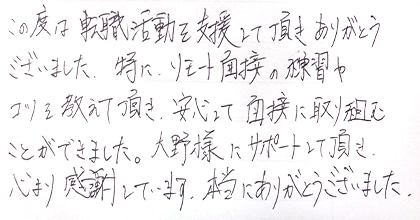 この度は転職活動を支援して頂きありがとう
ございました。特に、リモート面接の練習や
コツを教えて頂き、安心して面接に取り組む
ことができました。大野様にサポートして頂き、
心より感謝しています。本当にありがとうございました。